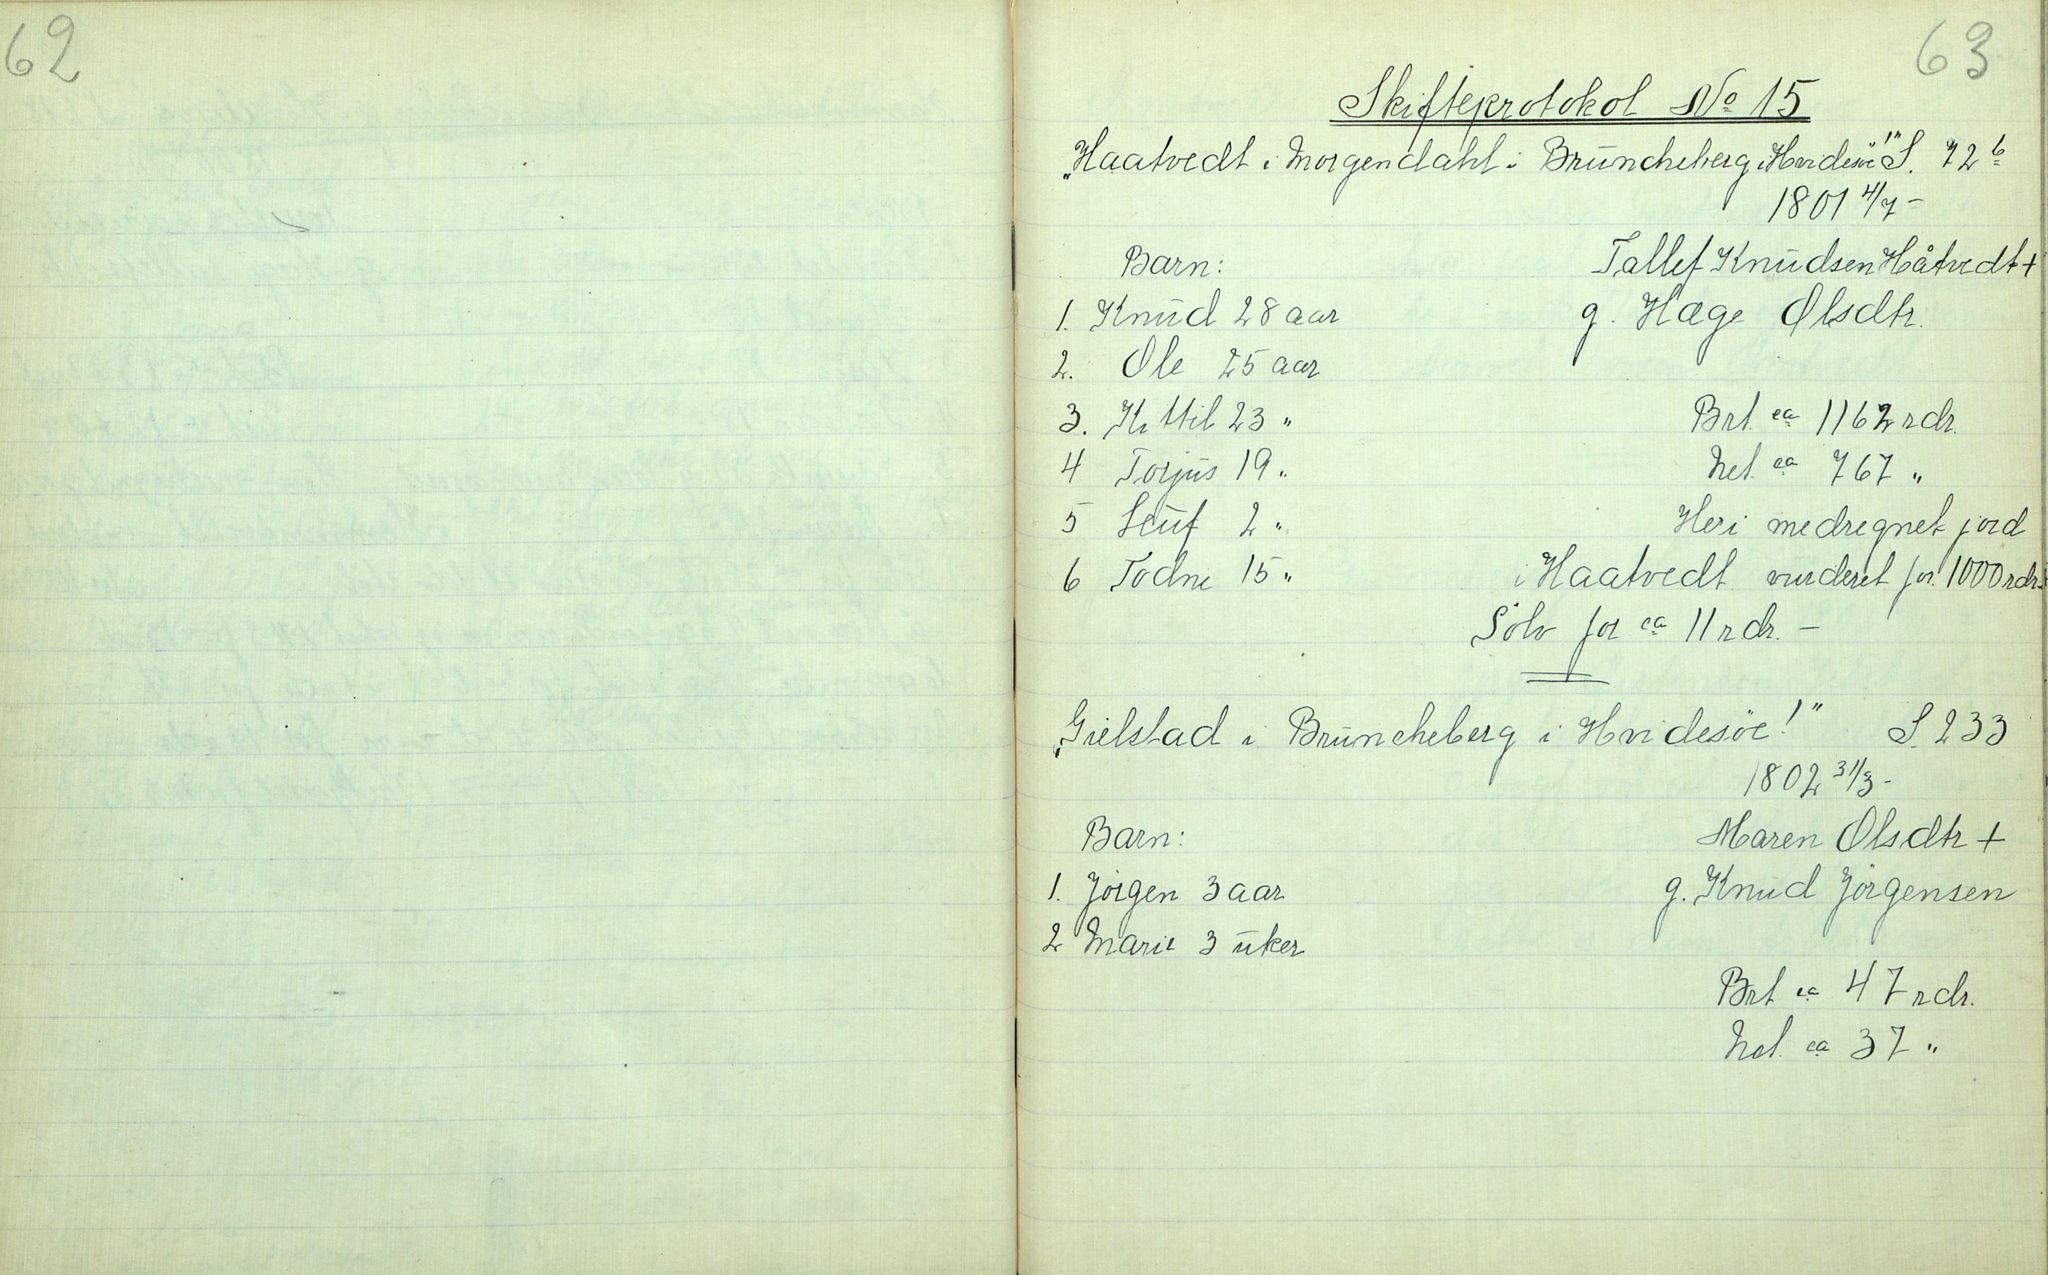 62
63
Skifteprotokol No 15
„Haatvedt i Morgendahl i Brüncheberg i Hvidesöe!" S. 72 b
1801 4/7 –
Barn: Tallef Knüdsen Håtvedt +
1. Knüd 28 aar g. Hæge Olsdtr.
2. Ole 25 aar
3. Kittil 23 " Brt. ca 1162 rdr.
4 Torjüs 19 " Net. ca 767 "
5 Leüf 2 " Heri medregnet jord
6 Todne 15 " i Haatvedt vurderet for 1000 rdr.
Sölv for ca 11 rdr. –
„Gielstad i Brüncheberg i Hvidesöe!" S. 233
1802 31/3 –
Barn: Maren Olsdtr +
1. Jörgen 3 aar g. Knüd Jörgensen
2 Marie 3 üker
Brt ca 47 rdr.
Net. ca 37 "